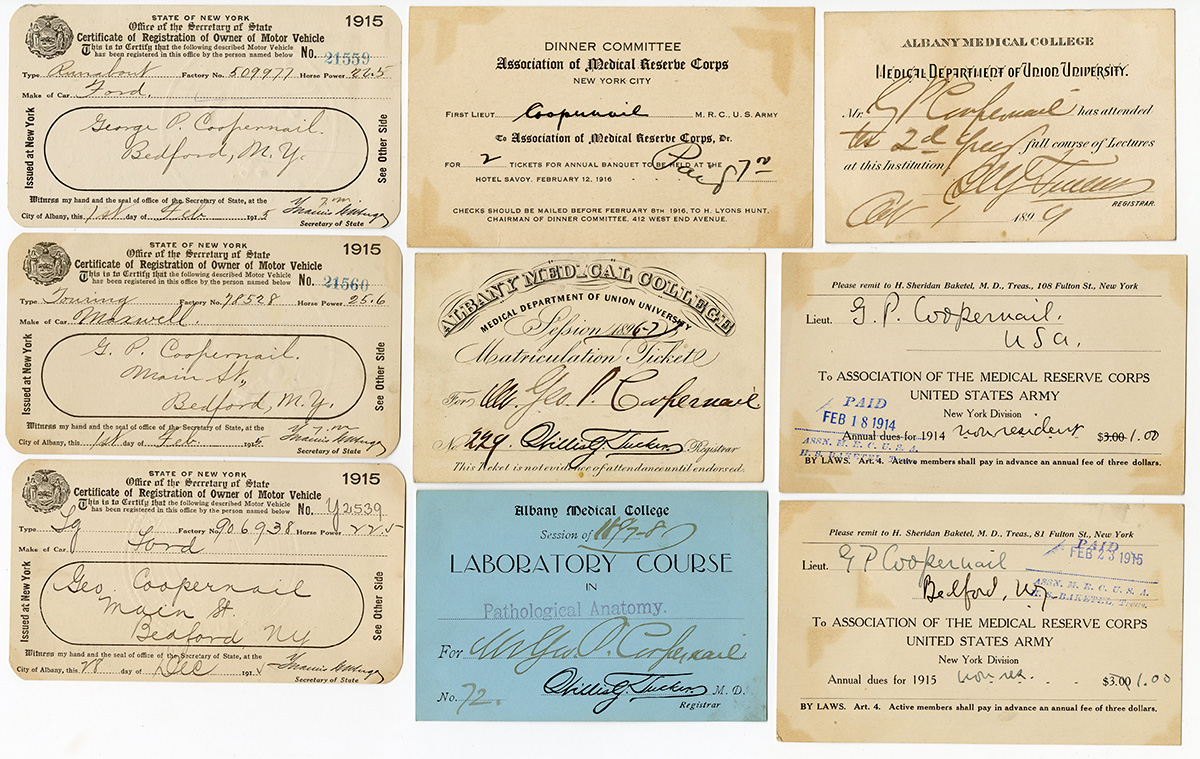 STATE OF NEW YORK 1915
Office of the Secretary of State
Certificate of Registration of Owner of Motor Vehicle
This is to Certify that the following described Motor Vehicle
has been registered in this office by the person named below No. 21559
Type Runabout Factory No. 509977 Horse Power 22.5
Make of Car Ford.
Issued at New York
George P. Coopernail.
Bedford N.Y.
See Other Side
Witness my hand and the seal of office of the Secretary of State, at the
City of Albany, this 1st day of Feb 1915
Secretary of State
STATE OF NEW YORK 1915
Office of the Secretary of State
Certificate of Registration of Owner of Motor Vehicle
This is to Certify that the following described Motor Vehicle
has been registered in this office by the person named below No. 21560
Type Touring Factory No. 78528 Horse Power 25.6
Make of Car Maxwell.
Issued at New York
G. P. Coopernail.
Main St.,
Bedford, N.Y.
See Other Side
Witness my hand and the seal of office of the Secretary of State, at the
City of Albany, this 1st day of Feb 191
Secretary of State
STATE OF NEW YORK 1915
Office of the Secretary of State
Certificate of Registration of Owner of Motor Vehicle
This is to Certify that the following described Motor Vehicle
has been registered in this office by the person named below No. Y2539
Type Factory No. 906938 Horse Power 22.5
Make of Car Ford
Issued at New York
Geo. Coopernail
Main St
Bedford NY
See Other Side
Witness my hand and the seal of office of the Secretary of State, at the
City of Albany, this 28 day of Dec 191
Secretary of State
DINNER COMMITTEE
Association of Medical Reserve Corps
NEW YORK CITY
FIRST LIEUT Coopernail M. R. C., U. S. ARMY
To Association of Medical Reserve Corps, Dr.
FOR 2 TICKETS FOR ANNUAL BANQUET TO BE HELD AT THE
HOTEL SAVOY, FEBRUARY 12, 1916 Paid 7.00
CHECKS SHOULD BE MAILED BEFORE FEBRUARY 8TH 1916, TO H. LYONS HUNT,
CHAIRMAN OF DINNER COMMITTEE, 412 WEST END AVENUE.
ALBANY MEDICAL COLLEGE
MEDICAL DEPARTMENT OF UNION UNIVERSITY
Session 1896-7
Matriculation Ticket
For Mr. Geo. P. Coopernail
No. 229. Willis G. Tucker Registrar
This Ticket is not evidence of attendance until endorsed.
Albany Medical College
Session of 1897-8
LABORATORY COURSE
IN
Pathological Anatomy.
For Mr Geo. P. Coopernail
No. 72. Willis G. Tucker M. D.
Registrar
ALBANY MEDICAL COLLEGE
MEDICAL DEPARTMENT OF UNION UNIVERSITY.
Mr. G P Coopernail has attended
his 2d year full course of Lectures
at this Institution W G Tucker
REGISTRAR.
1899
Please remit to H. Sheridan Baketel, M. D., Treas., 108 Fulton St., New York
Lieut. G. P. Coopernail.
USA.
To ASSOCIATION OF THE MEDICAL RESERVE CORPS
UNITED STATES ARMY
New York Division
PAID
FEB 18 1914
Annual dues for 1914 non resident $3.00 1.00
ASSN. M. R. C. U. S. A.
H. S. BAKETEL, Treas.
BY LAWS. Art. 4. Active members shall pay in advance an annual fee of three dollars.
Please remit to H. Sheridan Baketel, M. D., Treas., 81 Fulton St., New York
PAID
FEB 23 1915
Lieut. G P Coopernail
Bedford, NY
ASSN. M. R. C. U. S. A.
H. S. BAKETEL, Treas.
To ASSOCIATION OF THE MEDICAL RESERVE CORPS
UNITED STATES ARMY
New York Division
Annual dues for 1915 non res. $3.00 1.00
BY LAWS. Art. 4. Active members shall pay in advance an annual fee of three dollars.